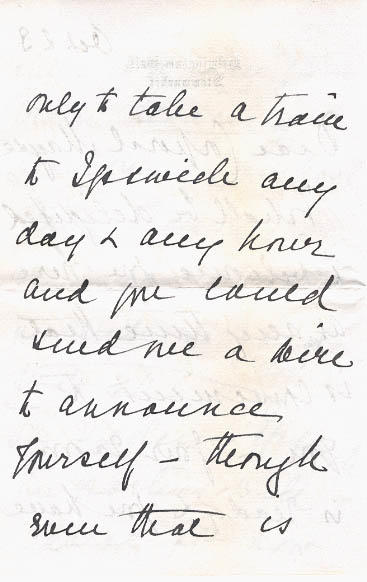 only to take a train
to Ipswich any
day & any hour
and you could
send me a wire
to announce
yourself – though
even that is